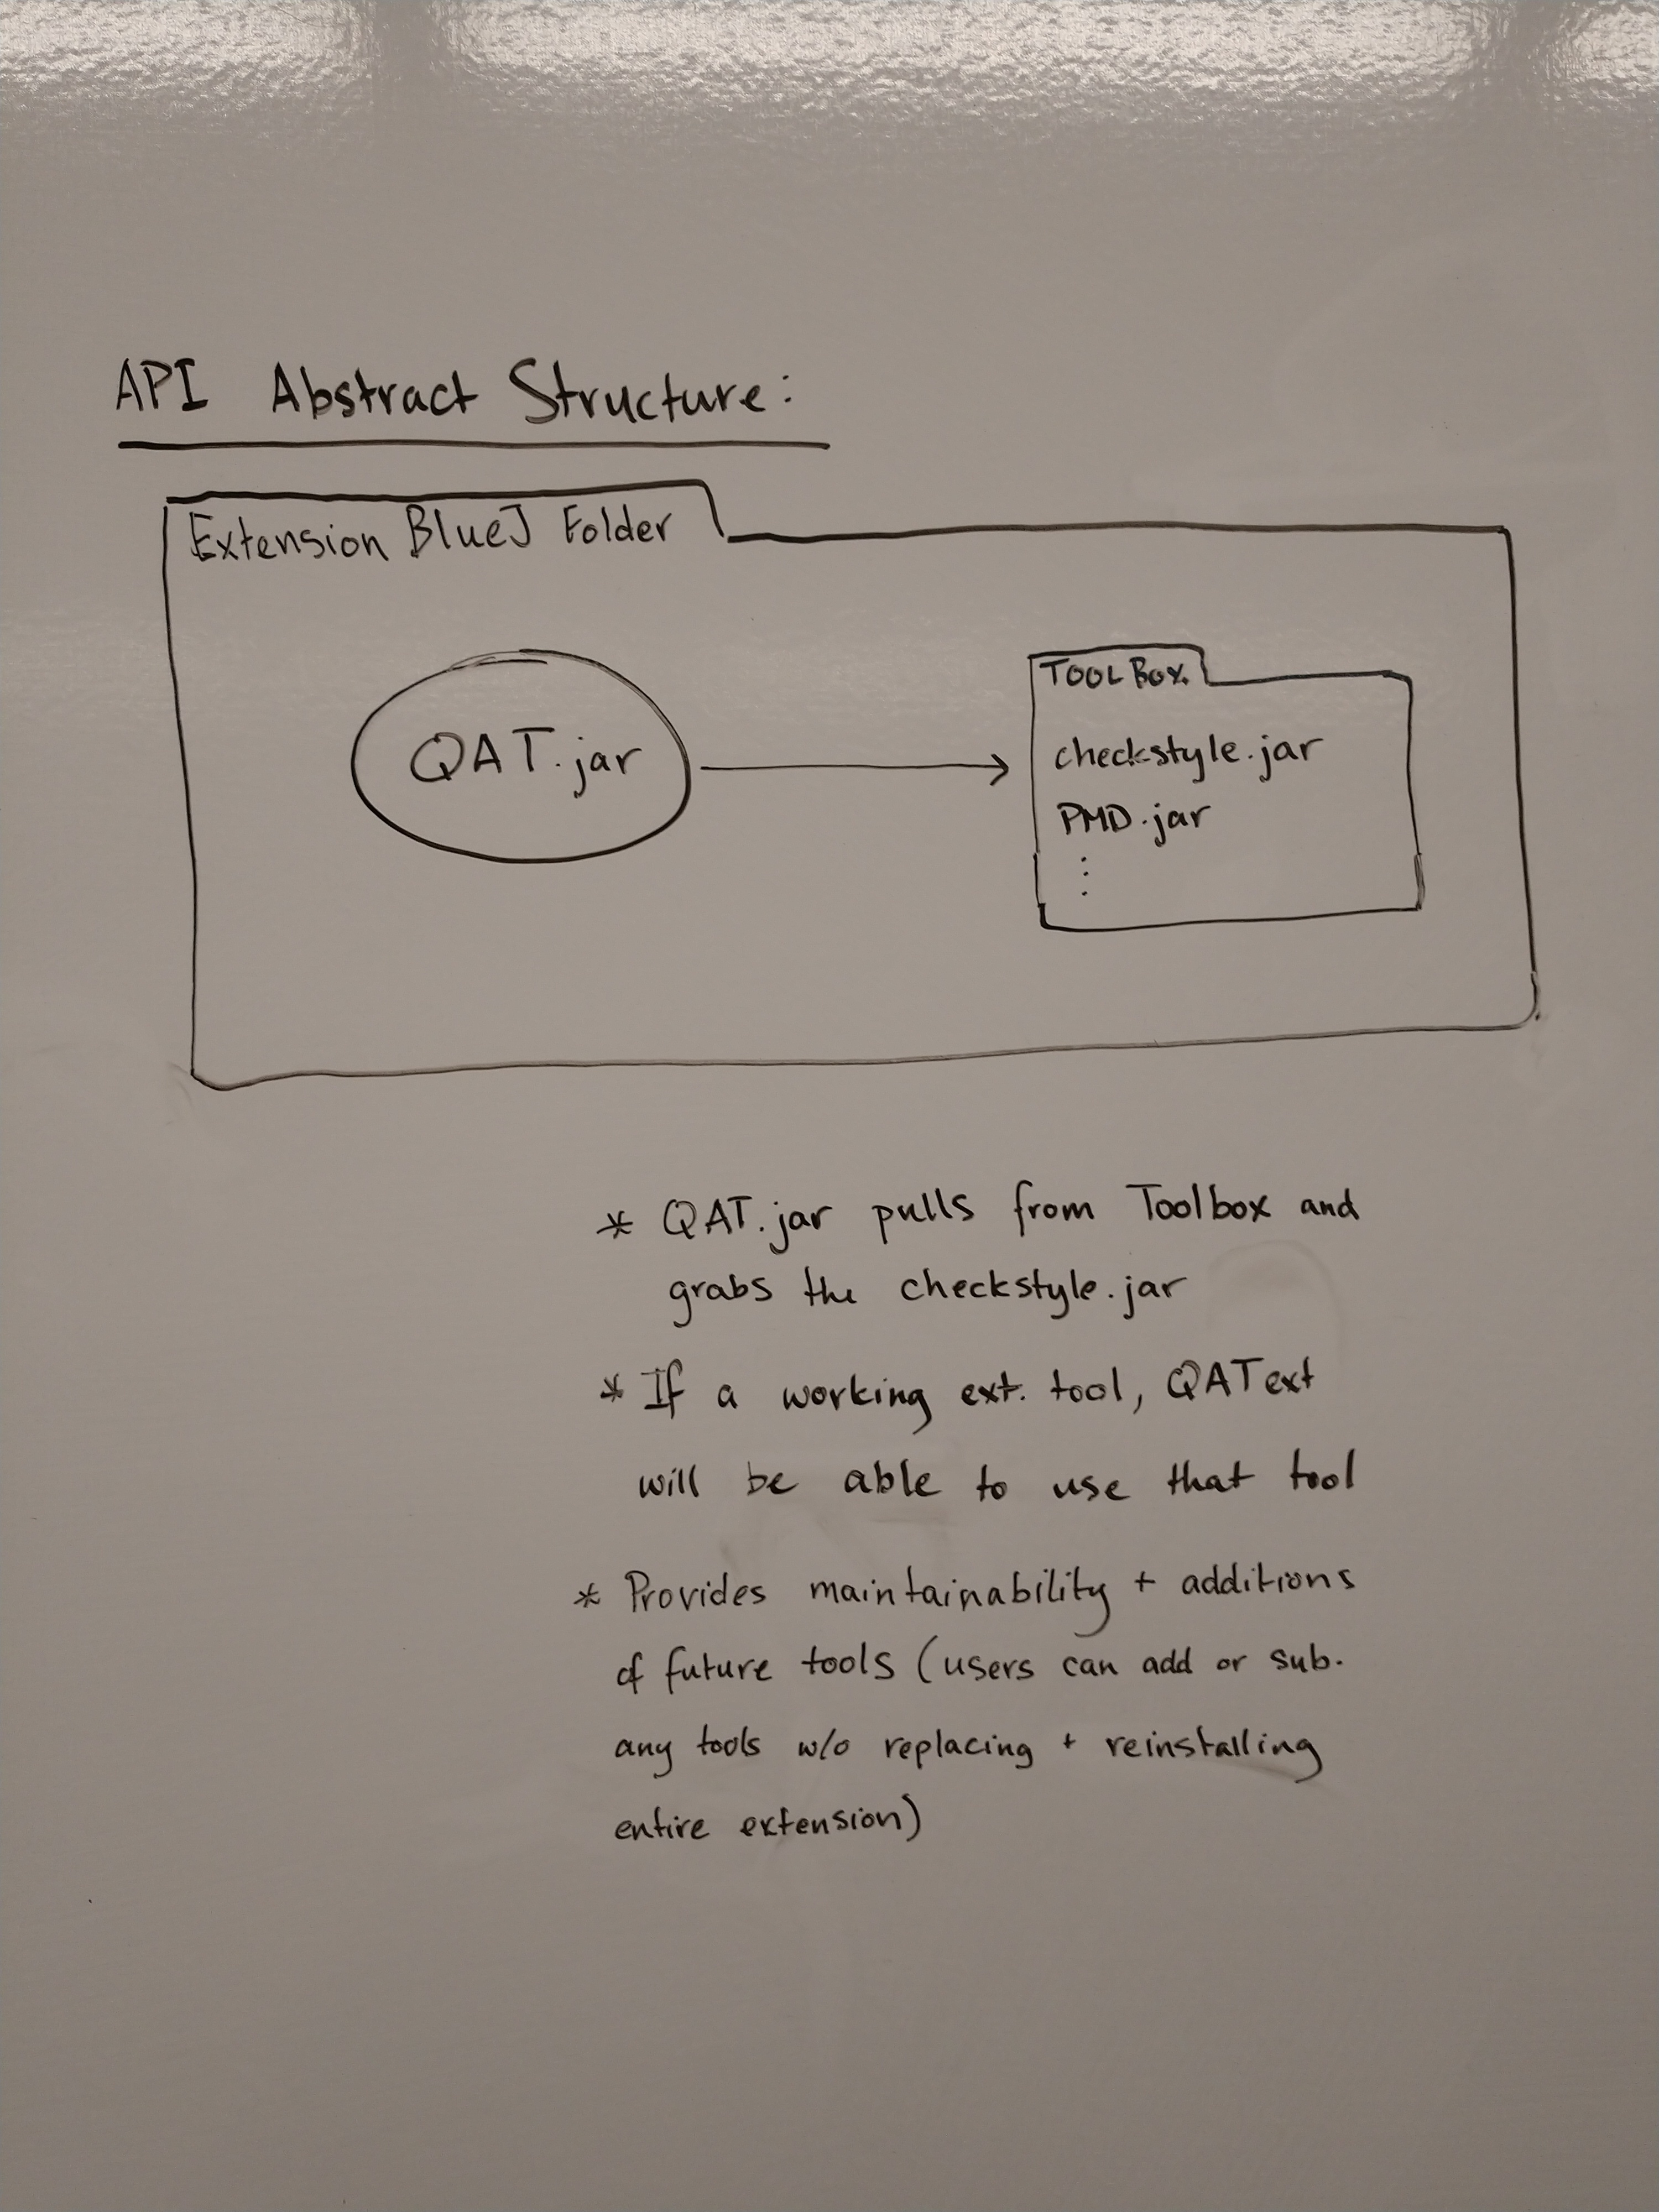 API Abstract Structure:
Extension BlueJ Folder
QAT.jar
TOOLBOX
checkstyle.jar
PMD.jar
⋮
* QAT.jar pulls from Toolbox and
grabs the checkstyle.jar
* If a working ext. tool, QAText
will be able to use that tool
* Provides maintainability + additions
of future tools (users can add or sub.
any tools w/o replacing + reinstalling
entire extension)